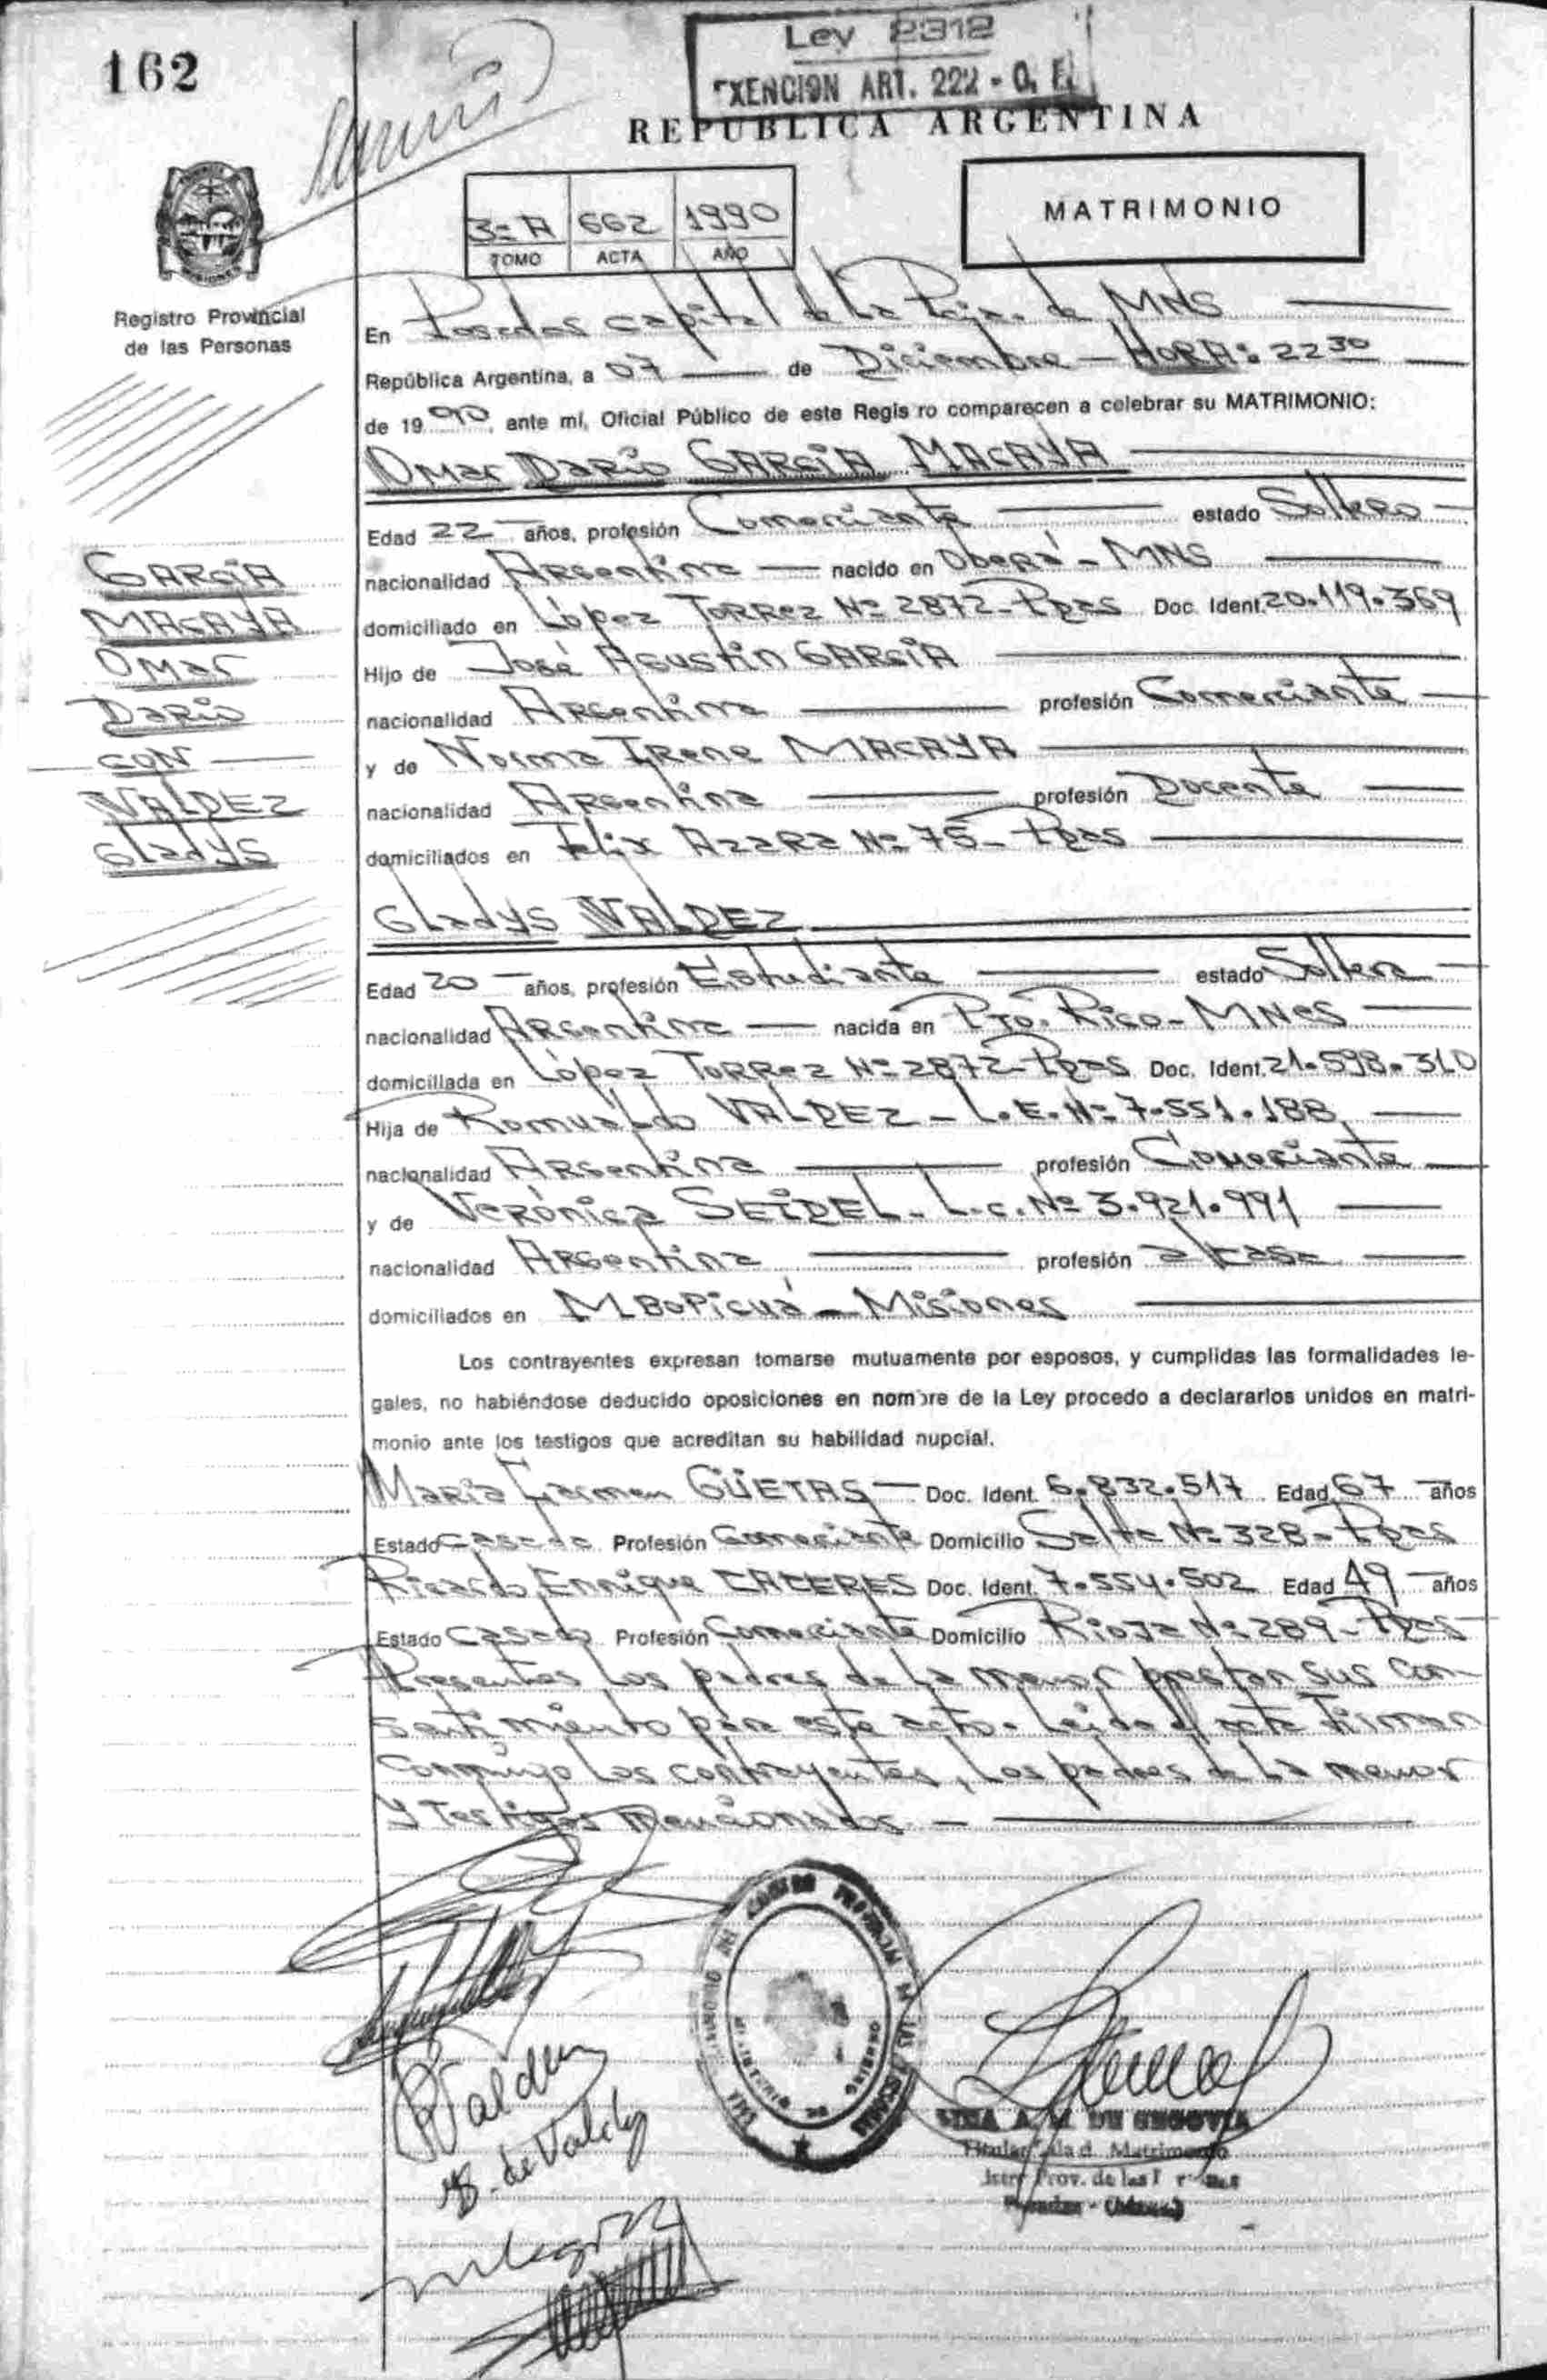 162
Ley 2312
EXENCION ART. 222 - C. F.
REPUBLICA ARGENTINA
3º A 662 1990
TOMO ACTA AÑO
MATRIMONIO
Registro Provincial
de las Personas
En Posadas capital de la Pcia. de MNS
República Argentina, a 07 de Diciembre - HORA: 22 30
de 1990, ante mí, Oficial Público de este Regis ro comparecen a celebrar su MATRIMONIO:
Omar Darío GARCIA MACAYA
Edad 22 años, profesión Comerciante estado Soltero
nacionalidad Argentina nacido en Oberá - MNS
domiciliado en López Torrez Nº 2872 - Pdas Doc. Ident. 20.119.369
Hijo de José Agustín GARCIA
nacionalidad Argentina profesión Comerciante
y de Norma Irene MACAYA
nacionalidad Argentina profesión Docente
domiciliados en Felix Azara Nº 75 - Pdas
GARCIA
MACAYA
Omar
Darío
CON
VALDEZ
Gladys
Gladys VALDEZ
Edad 20 años, profesión Estudiante estado Soltera
nacionalidad Argentina nacida en Pto. Rico - MNES
domiciliada en López Torrez Nº 2872 - Pdas Doc. Ident. 21.598.310
Hija de Romualdo VALDEZ - L.E. Nº 7.551.188
nacionalidad Argentina profesión Comerciante
y de Verónica SEIDEL - L.C. Nº 3.921.991
nacionalidad Argentina profesión a/casa
domiciliados en Mbopicuá - Misiones
Los contrayentes expresan tomarse mutuamente por esposos, y cumplidas las formalidades le-
gales, no habiéndose deducido oposiciones en nombre de la Ley procedo a declararlos unidos en matri-
monio ante los testigos que acreditan su habilidad nupcial.
María Carmen GÜETAS Doc. Ident. 6.832.517 Edad 67 años
Estado Casada Profesión Comerciante Domicilio Salta Nº 328 - Pdas
Ricardo Enrique CACERES Doc. Ident. 7.554.502 Edad 49 años
Estado Casado Profesión Comerciante Domicilio Rioja Nº 289 - Pdas
Presentes los padres de la menor prestan sus con-
sentimiento para este acto. Leída el acta Firman
conmigo los contrayentes, los padres de la menor
y Testigos mencionados -
R Valdez
de Valdez
LINA A. M. DE SEGOVIA
Matrimonio
Prov. de las
Posadas - (Mnes)